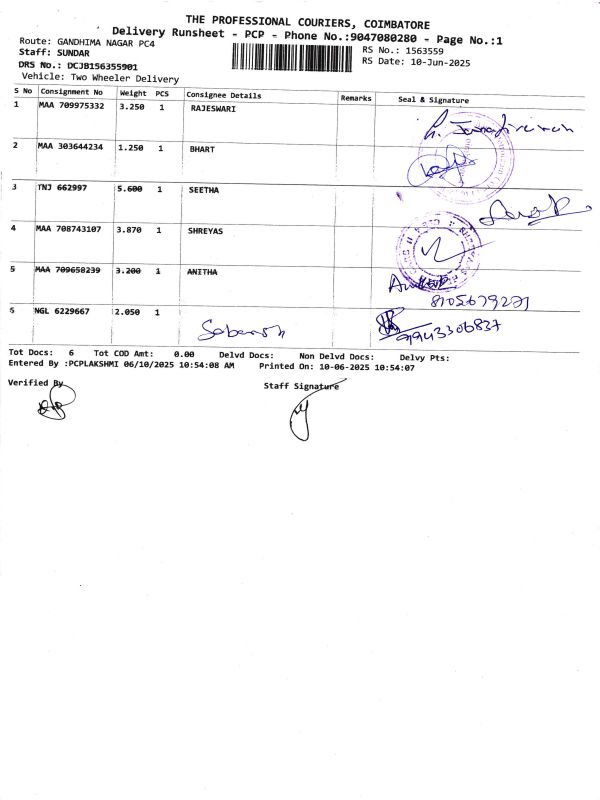 THE PROFESSIONAL COURIERS, COIMBATORE
Delivery Runsheet - PCP - Phone No.:9047080280 - Page No.:1
Route: GANDHIMA NAGAR PC4 RS No.: 1563559
Staff: SUNDAR RS Date: 10-Jun-2025
DRS No.: DCJB156355901
Vehicle: Two Wheeler Delivery
S No Consignment No Weight PCS Consignee Details Remarks Seal & Signature
1 MAA 709975332 3.250 1 RAJESWARI
2 MAA 303644234 1.250 1 BHART
3 TNJ 662997 5.600 1 SEETHA
4 MAA 708743107 3.870 1 SHREYAS
5 MAA 709658239 3.200 1 ANITHA
8105679271
6 NGL 6229667 2.050 1
9943306837
Tot Docs: 6 Tot COD Amt: 0.00 Delvd Docs: Non Delvd Docs: Delvy Pts:
Entered By :PCPLAKSHMI 06/10/2025 10:54:08 AM Printed On: 10-06-2025 10:54:07
Verified By Staff Signature